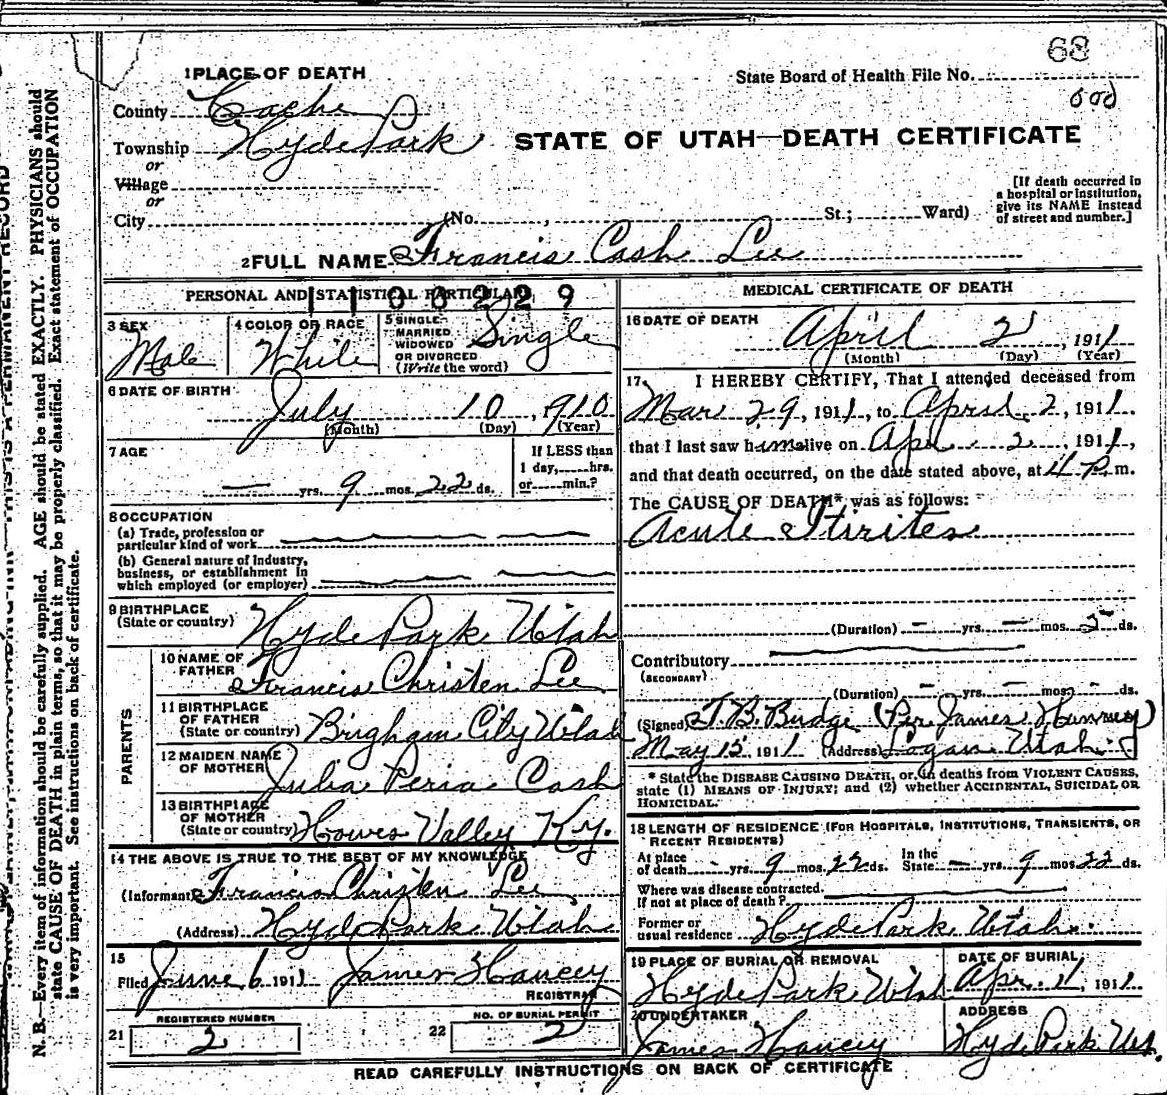 68
1 PLACE OF DEATH
State Board of Health File No.
County Cache
Township Hyde Park
STATE OF UTAH—DEATH CERTIFICATE
or
Village
or
City (No. , St.; Ward)
[If death occurred in a hospital or institution, give its NAME instead of street and number.]
2 FULL NAME Francis Cash Lee
PERSONAL AND STATISTICAL PARTICULARS
3 SEX Male
4 COLOR OR RACE White
5 SINGLE MARRIED WIDOWED OR DIVORCED (Write the word) Single
6 DATE OF BIRTH July 10, 1910
(Month) (Day) (Year)
7 AGE
— yrs. 9 mos. 22 ds.
If LESS than 1 day, hrs. or min.?
8 OCCUPATION
(a) Trade, profession or particular kind of work
(b) General nature of industry, business, or establishment in which employed (or employer)
9 BIRTHPLACE (State or country) Hyde Park Utah
PARENTS
10 NAME OF FATHER Francis Christen Lee
11 BIRTHPLACE OF FATHER (State or country) Brigham City Utah
12 MAIDEN NAME OF MOTHER Julia Peria Cash
13 BIRTHPLACE OF MOTHER (State or country) Howes Valley Ky.
14 THE ABOVE IS TRUE TO THE BEST OF MY KNOWLEDGE
(Informant) Francis Christen Lee
(Address) Hyde Park Utah
15
Filed June 6 1911 James Hancey
REGISTRAR
21 REGISTERED NUMBER 2
22 NO. OF BURIAL PERMIT 2
MEDICAL CERTIFICATE OF DEATH
16 DATE OF DEATH April 2, 1911
(Month) (Day) (Year)
17 I HEREBY CERTIFY, That I attended deceased from
Mar 29, 1911, to April 2, 1911
that I last saw him alive on Apr. 2, 1911,
and that death occurred, on the date stated above, at 4 P.m.
The CAUSE OF DEATH* was as follows:
Acute
(Duration) — yrs. — mos. 5 ds.
Contributory
(SECONDARY)
(Duration) - yrs. - mos. - ds.
(Signed) T. B. Budge (Per James Hancey)
May 15 1911 (Address) Logan Utah.
* State the DISEASE CAUSING DEATH, or, in deaths from VIOLENT CAUSES, state (1) MEANS OF INJURY; and (2) whether ACCIDENTAL, SUICIDAL OR HOMICIDAL.
18 LENGTH OF RESIDENCE (FOR HOSPITALS, INSTITUTIONS, TRANSIENTS, OR RECENT RESIDENTS)
At place of death - yrs. 9 mos. 22 ds. In the State — yrs. 9 mos. 22 ds.
Where was disease contracted. If not at place of death?
Former or usual residence Hyde Park Utah.
19 PLACE OF BURIAL OR REMOVAL Hyde Park Utah
DATE OF BURIAL Apr. 4, 1911
20 UNDERTAKER James Hancey
ADDRESS Hyde Park Ut.
READ CAREFULLY INSTRUCTIONS ON BACK OF CERTIFICATE
N. B.—Every item of information should be carefully supplied. AGE should be stated EXACTLY. PHYSICIANS should
state CAUSE OF DEATH in plain terms, so that it may be properly classified. Exact statement of OCCUPATION
is very important. See instructions on back of certificate.